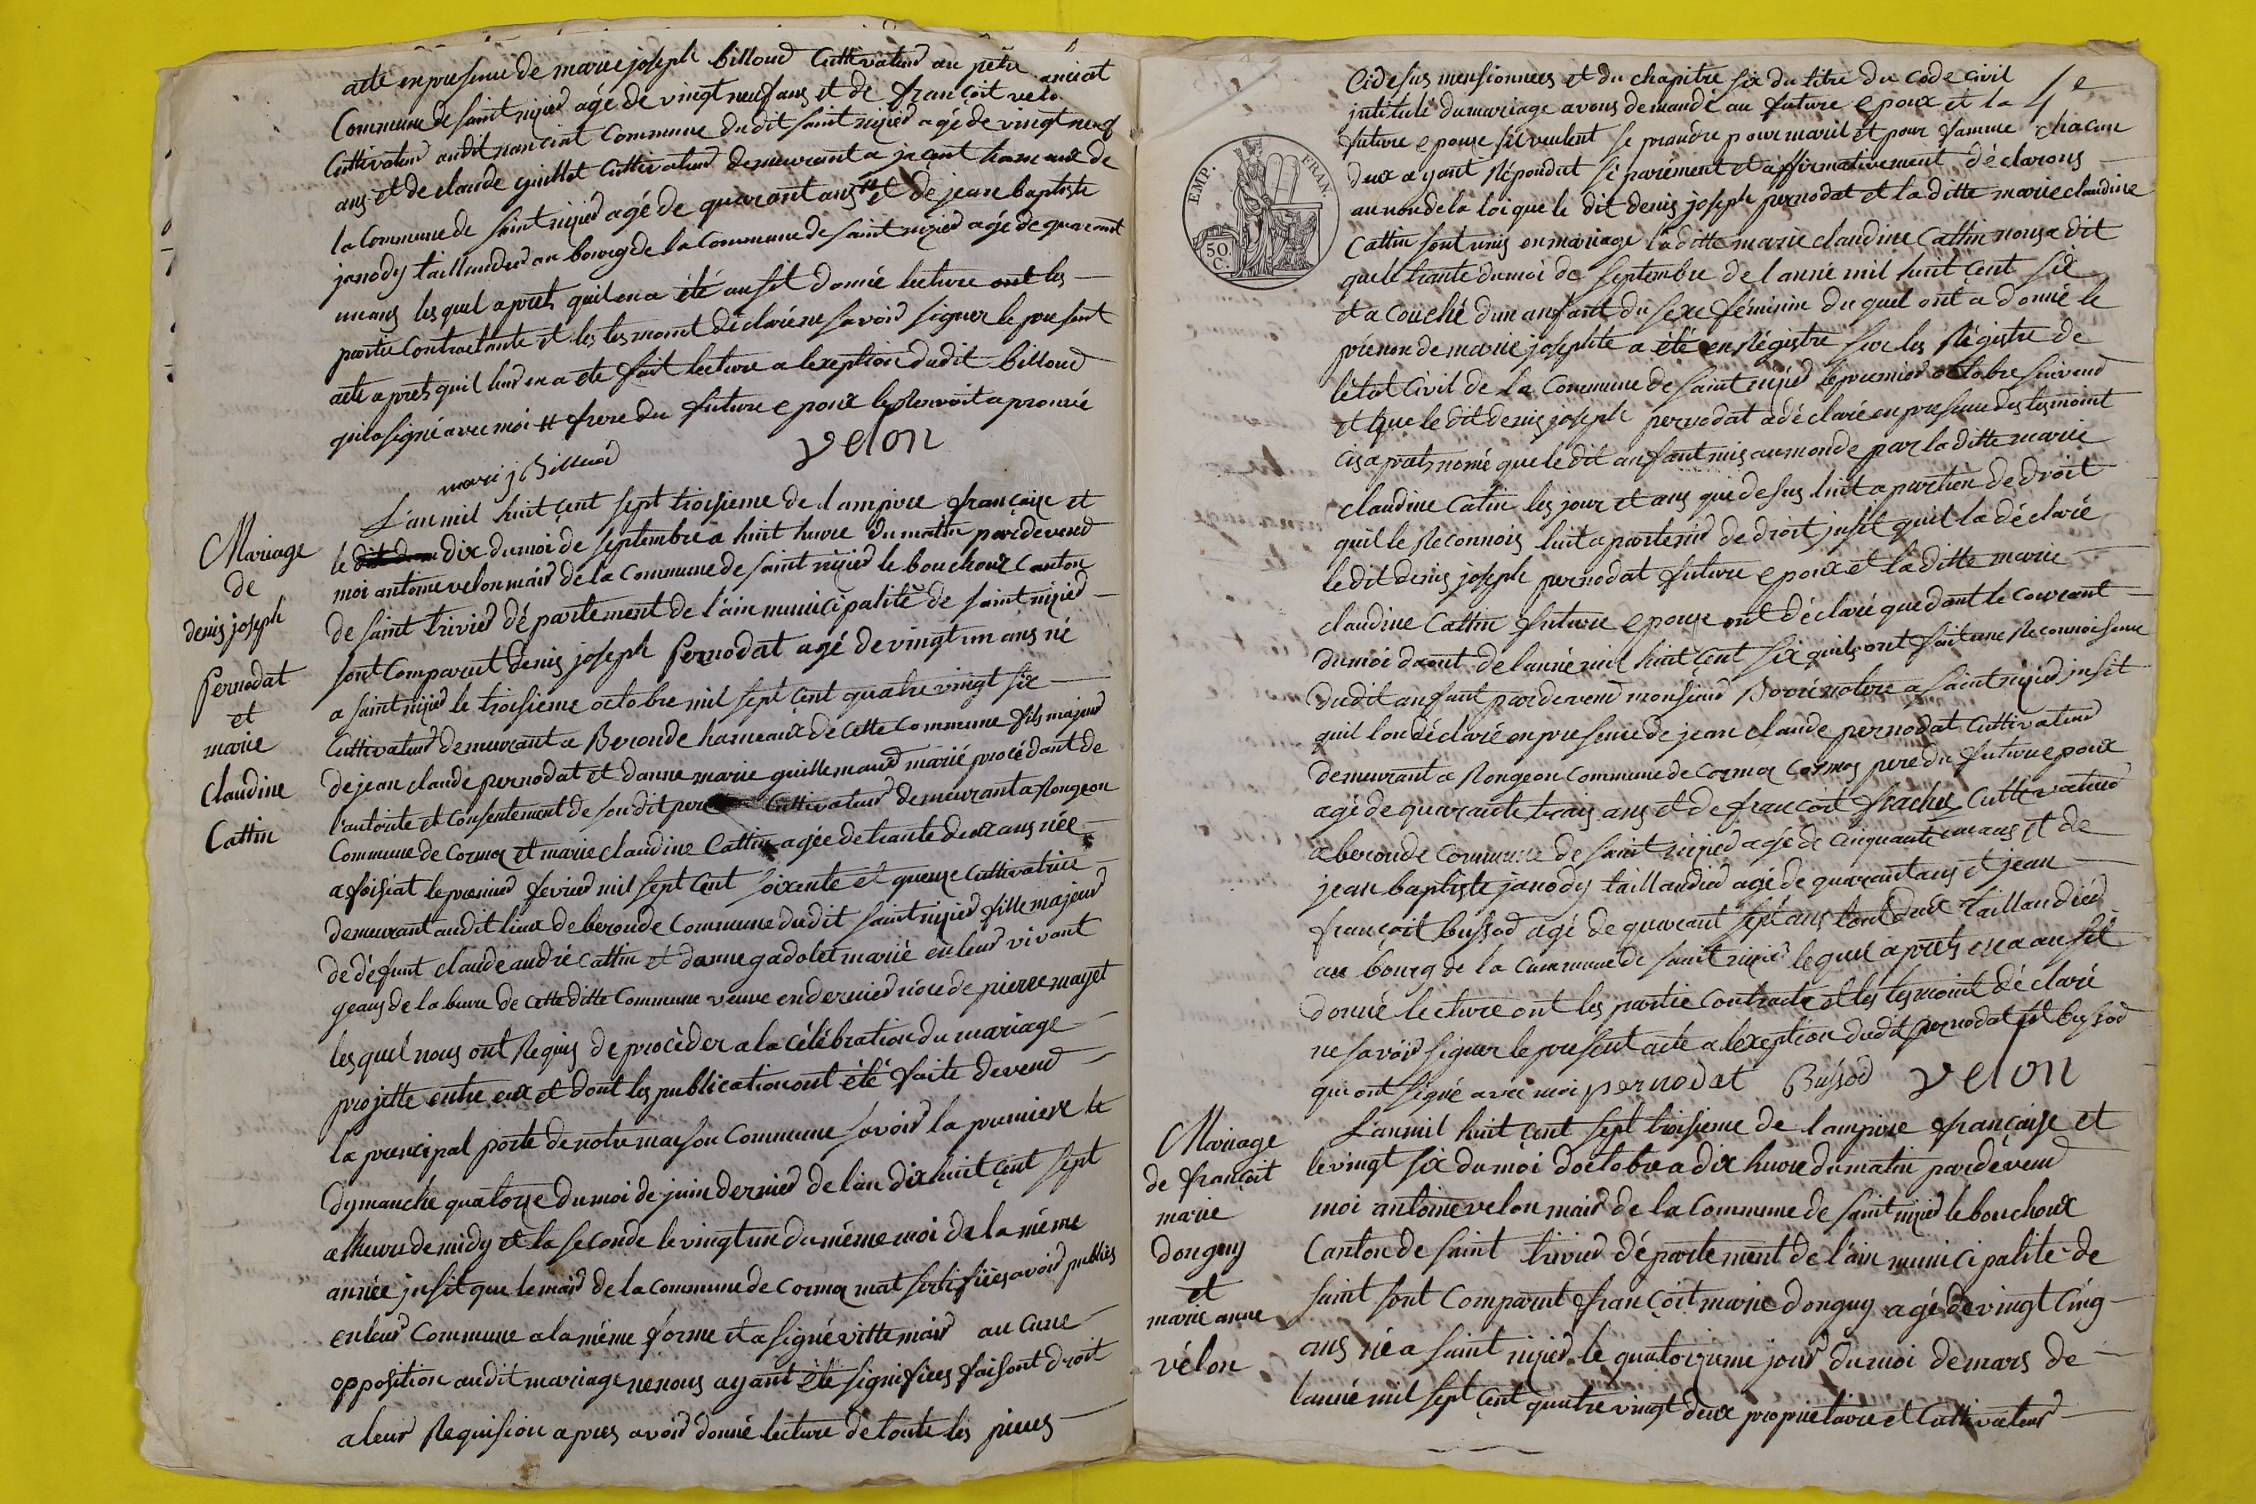 acte en presence de marie joseph billoud Cultivateur au petit anciat
Commune de saint nizier agé de vingt neuf ans et de françoit velo
Cultivateur audit nanciat Commune dudit saint nizier agé de vingt neuf
ans et de claude guillot Cultivateur demeurant a jaçont hameaux de
la Commune de saint nizier agé de quarant ans # et de jean baptiste
janody taillandier au bourg de la Commune de saint nizier agé de quarant
un ans les quel apres quil en a été ausit donné lecture ont les
partie Contractante et les tesmoint déclaré ne savoir signer le present
acte apres quil leur en a ete fait lecture a lexeption dudit billoud
qui la signé avec moi # frere du future epoux le Renvoit aprouvé
marie j Billioud
velon
Mariage
de
denis joseph
Pernodat
et
marie
Claudine
Cattin
L'an mil huit çent sept troisieme de lampire française et
le dix du moi de septembre a huit heure du matin pardevend
moi antoine velon mair de la Commune de saint nizier le bouchoux Canton
de saint trivier département de l'ain municipalité de saint nizier
sont Comparut denis joseph Pernodat agé de vingt un ans né
a saint nizier le troisieme octobre mil sept cent quatre vingt six
Cultivateur demeurant a Beronde hameaux de Cette Commune fils majeur
de jean claude pernodat et danne marie guillemaud marié procédant de
l'autorite et Consentement de son dit pere Cultivateur demeurant a Rongeon
Commune de Cormoz et marie claudine Cattin agée de trante deux ans née
a foisiat le premier fevrier mil sept Cent soixente et quenze Cultivatrice
demeurant audit lieux de beronde Commune dudit saint nizier fille majeur
de défunt claude andré Cattin et danne gadolet marié en leur vivant
geans de la bure de Cette ditte Commune veuve en dernier nôce de pierre mayet
les quel nous ont Requis de procèder a la célébration du mariage
projitte entre eux et dont les publication ont été faite devend
la prencipal porte de notre maison Commune savoir la premiere le
dymanche quatorze du moi de juin dernier de l'an dix huit çent sept
a lheure de midy et la seconde le vingt un du même moi de la même
année jnsit que le mair de la Commune de Cormoz mat sertifiées avoir publies
en leur Commune a la même forme et a signé vitte mair au cune
opposition audit mariage ne nous ayant été signifiées faisont droit
a leur Requision apres avoir donné lecture de toute les pieces
EMP. FRAN
50
C.
4e
Cidesus mensionnees et du chapitre six du titre du code civil
jntitulé du mariage avons demandé au future epoux et la
future epouse sil veulent se prandre pour maril et pour famme chacun
deux ayant Répondut séparément et affirmativement déclarons
au non de la loi que le dit denis joseph pernodat et la ditte marie claudine
Cattin sont unis en mariage la ditte marie claudine Cattin nousa dit
que le trante du moi de septembre de l anné mil huit çent six
et a couché dun anfant du sexe féminin du quel ont a donné le
prenon de marie josephte a été enRégistre sur les Régistre de
létat Civil de la Commune de saint nizier le premier octobre suivend
et que le dit denis joseph pernodat a déclaré en presence des tesmoint
cis aprets nomé que le dit anfant mis au monde par la ditte marie
claudine Catin les jour et ans que desus luit apartien de droit
quil le Reconnois luit apartenir de droit jnsit quil la déclaré
le dit denis joseph pernodat future epoux et la ditte marie
claudine Cattin future epouse ont déclaré que dant le courant
du moi daout de lanné mil huit çent six quils ont fait une Reconnoisance
du dit anfant pardevend monsieur Borré notere a saint nizier jnsit
quil lon déclaré en presence de jean claude pernodat Cultivateur
demeurant a Rongeon Commune de Cormoz Cormoz pere du future epoux
agé de quarante trois ans et de françoit frachez Cultivateur
a beronde Commune de saint nizier agé de cinquante un ans et de
jean baptiste janody taillandier agé de quarant ans et jean
françoit bussod agé de quarant sept ans tout deux taillandier
au bourg de la Commune de saint nizier lequel aprets en a ausit
donné lecture ont les partie Contracte et les tesmoint déclaré
ne savoir signer le present acte a lexeption dudit pernodat et bussod
qui ont signé avec moi pernodat Bussod velon
Mariage
de françoit
marie
donguy
et
marie anne
vélon
L'an mil huit çent sept troisieme de lampire française et
le vingt six du moi doctobre a dix heure du matin pardevend
moi antoine velon mair de la Commune de saint nizier le bouchoux
Canton de saint trivier département de l'ain municipalite de
saint sont Comparut françoit marie donguy agé de vingt cinq
ans né a saint nizier le quatorzieme jour du moi de mars de
lanné mil sept çent quatre vingt deux proprietaire et Cultivateur